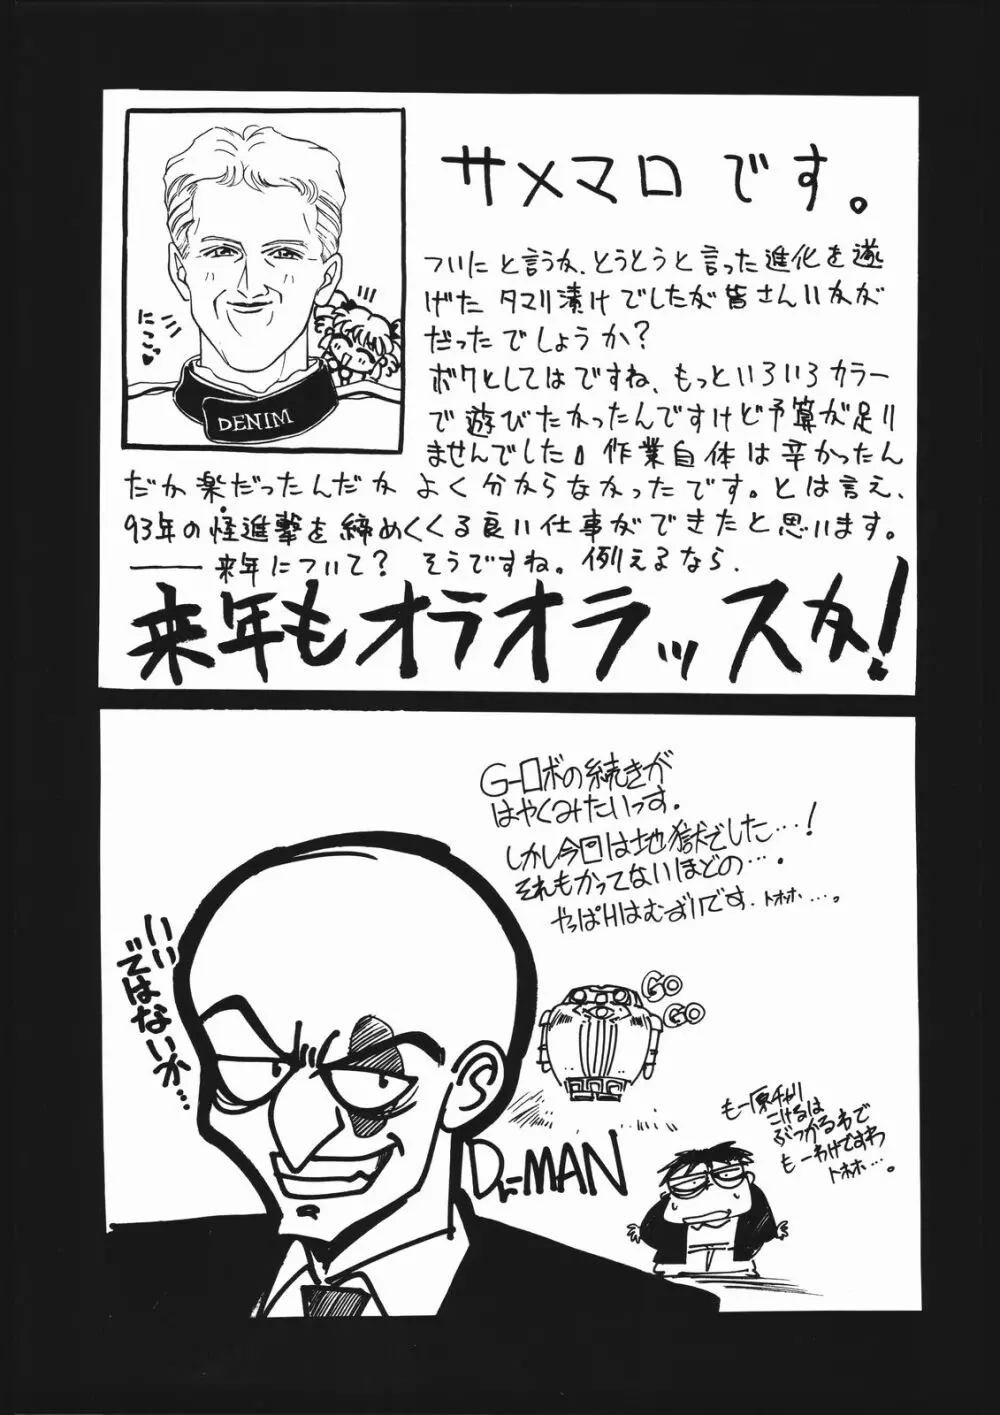 サメマロです。
ついにと言うか、とうとうと言った進化を遂
げたタマリ漬けでしたが皆さんいかが
だったでしょうか?
ボクとしてはですね、もっといろいろカラー
で遊びたかったんですけど予算が足り
ませんでした。作業自体は辛かったん
だか楽だったんだかよく分からなかったです。とは言え、
93年の怪進撃を締めくくる良い仕事ができたと思います。
——来年について?そうですね。例えるなら、
来年もオラオラッスか!
にこっ♥
DENIM
G-ロボの続きが
はやくみたいっす。
しかし今回は地獄でした…!
それもかってないほどの…。
やっぱHはむずいです.トホホ…。
いい
ではないか…
GO
GO
Dr-MAN
もー原チャリ
こけるは
ぶつかるわで
もーわけですわ
トホホ…。